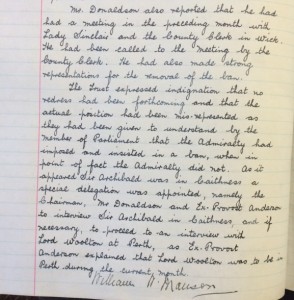 Mr. Donaldson also reported that he had
had a meeting in the preceding month with
Lady Sinclair and the County Clerk in Wick.
He had been called to the meeting by the
County Clerk. He had also made strong
representations for the removal of the ban.
The Trust expressed indignation that no
redress had been forthcoming and that the
actual position had been mis-represented as
they had been given to understand by the
member of Parliament that the Admiralty had
imposed and insisted in a ban, when in
point of fact the Admiralty did not. As it
appeared Sir Archibald was in Caithness a
special delegation was appointed, namely the
Chairman, Mr Donaldson and Ex-Provost Anderson
to interview Sir Archibald in Caithness, and if
necessary, to proceed to an interview with
Lord Woolton at Perth, as Ex-Provost
Anderson explained that Lord Woolton was to be in
Perth during the current month.
William A. Manson